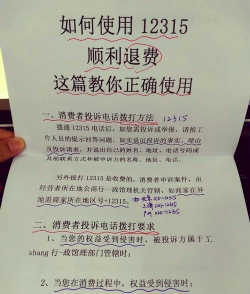 如何使用 12315
顺利退费
这篇教你正确使用
一、消费者投诉电话拨打方法 12315
拨通 12315 电话后，如您需投诉或举报，请按工
作人员的提示回答问题，如实说出投诉的事实、理由
及投诉请求，并说出自己的姓名、地址、电话号码或
其他联系方式和被申诉方的名称、地址、电话。
另外拨打 12315 是收费的。消费者申诉案件，由
经营者所在地公商行一政馆理机关管辖，如商家在异
地需商家所在地区号+12315。
北京 010-12315
上海 021-12315
广州 020-12315
二、消费者投诉电话拨打要求
1、当您的权益受到侵害时，被投诉方属于工
shang 行一政馆理部门管辖时；
2、当您在消费过程中，权益受到侵害时；